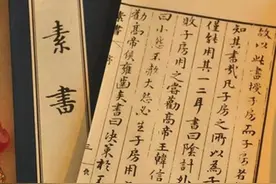 故以此書授子房而子房者
知其書哉凡子房之所以為子
僅能用其一二耳書曰陰計外
敗子房用之嘗勸高帝王韓信
曰小怨不赦大怨必生子房用
勸高帝侯雍齒矣書曰決策於
素書